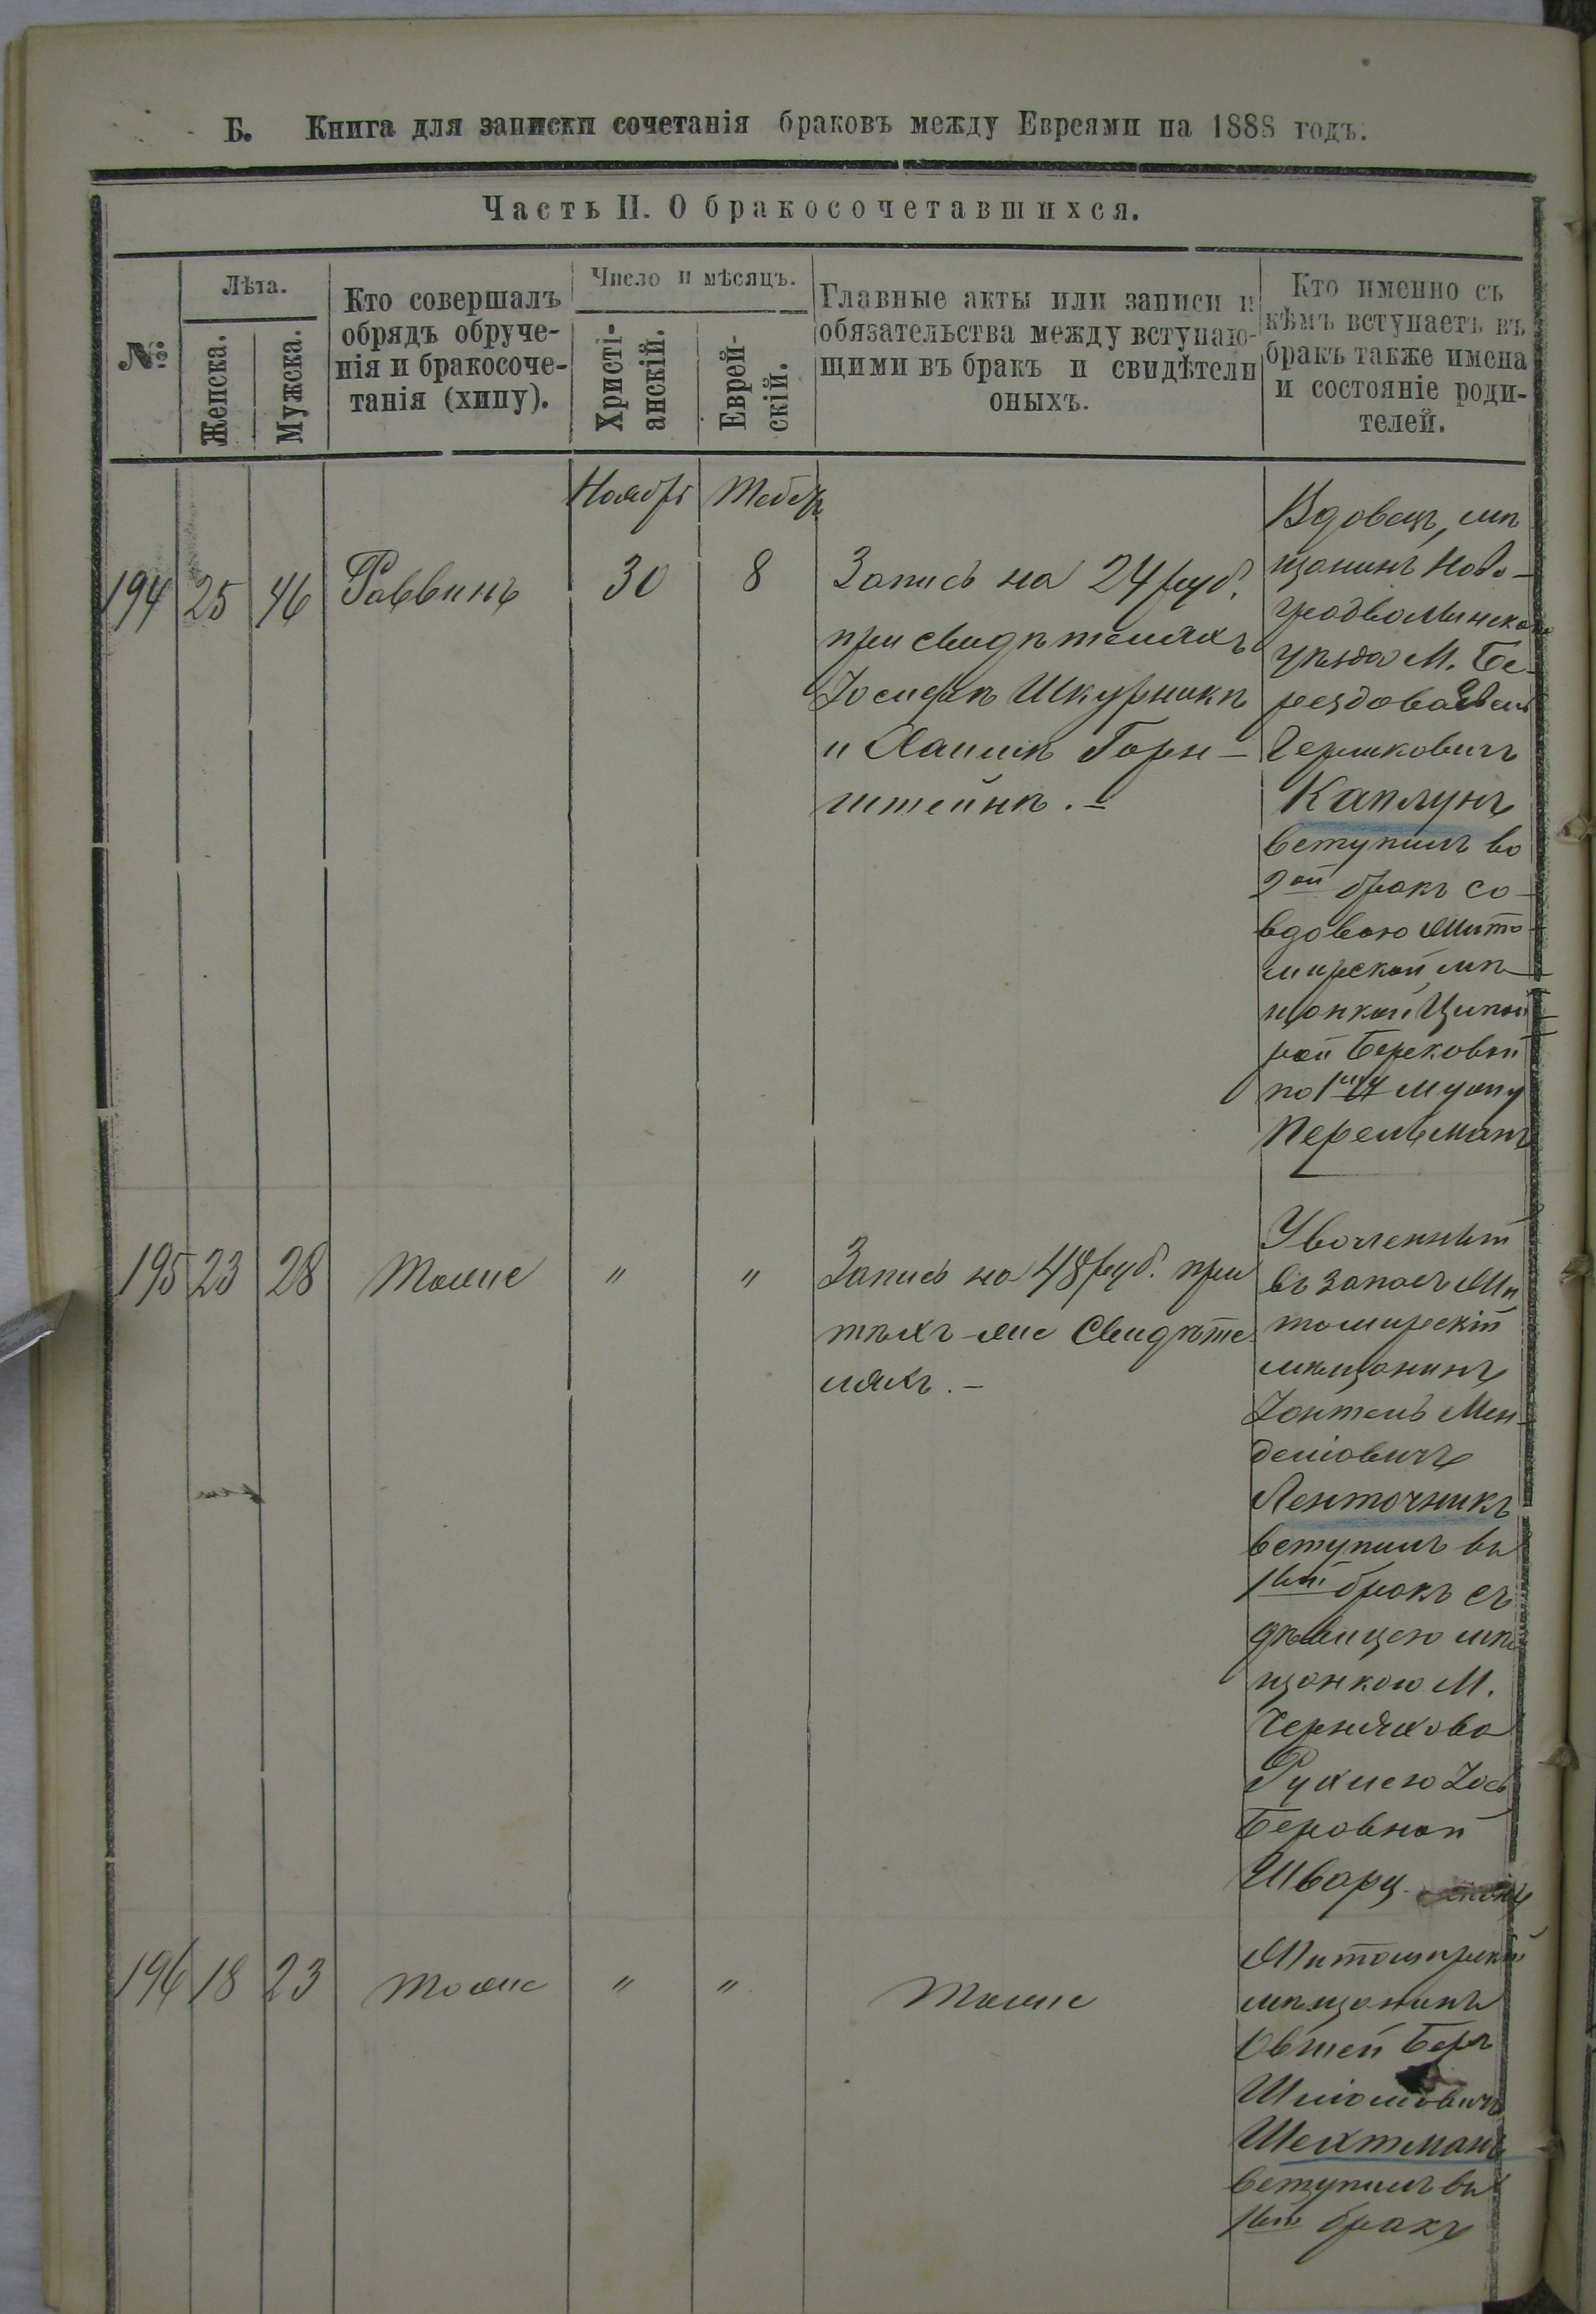 Б. Книга для записки сочетанія браковъ между Евреями на 1888 годъ.
Часть II. О бракосочетавшихся.
№
Лѣта.
Женска.
Мужска.
Кто совершалъ
обрядъ обруче-
нія и бракосоче-
танія (хипу).
Число и мѣсяцъ.
Христі-
анскій.
Еврей-
скій.
Главные акты или записи и
обязательства между вступаю-
щими въ бракъ и свидѣтели
оныхъ.
Кто именно съ
кѣмъ вступаетъ въ
бракъ также имена
и состояніе роди-
телей.
Ноябрь
194 25 46 Раввинъ 30 8
Запись на 24 руб.
при свидѣтеляхъ
Іосифѣ Шкурникѣ
и Хаимѣ Горн-
штейнѣ.–
Вдовецъ, мѣ
щанинъ Ново-
градволынскаго
уѣзда М. Бе-
Гершковичъ
Каплунъ
вступилъ во
2ой бракъ со
вдовою Жито
мирской мѣ
щанкой Ципой
рой Берковой
по 1му мужу
Перельманъ
195 23 28 Тоже " "
Запись на 48 руб. при
тѣхъ-же Свидѣте
ляхъ.–
Уволенный
въ запасъ Жи
томирскій
мѣщанинъ
Мен-
деліовичъ
Ленточникъ
вступилъ въ
1ый бракъ съ
дѣвицею мѣ
щанкою М.
Черняхова
Рухлею Іось
Беровной
Шварц
196 18 23 тоже " " Тоже
Житомирскій
мѣщанинъ
Овшей Беръ
Шліомовичъ
Шехтманъ
вступилъ въ
1ый бракъ